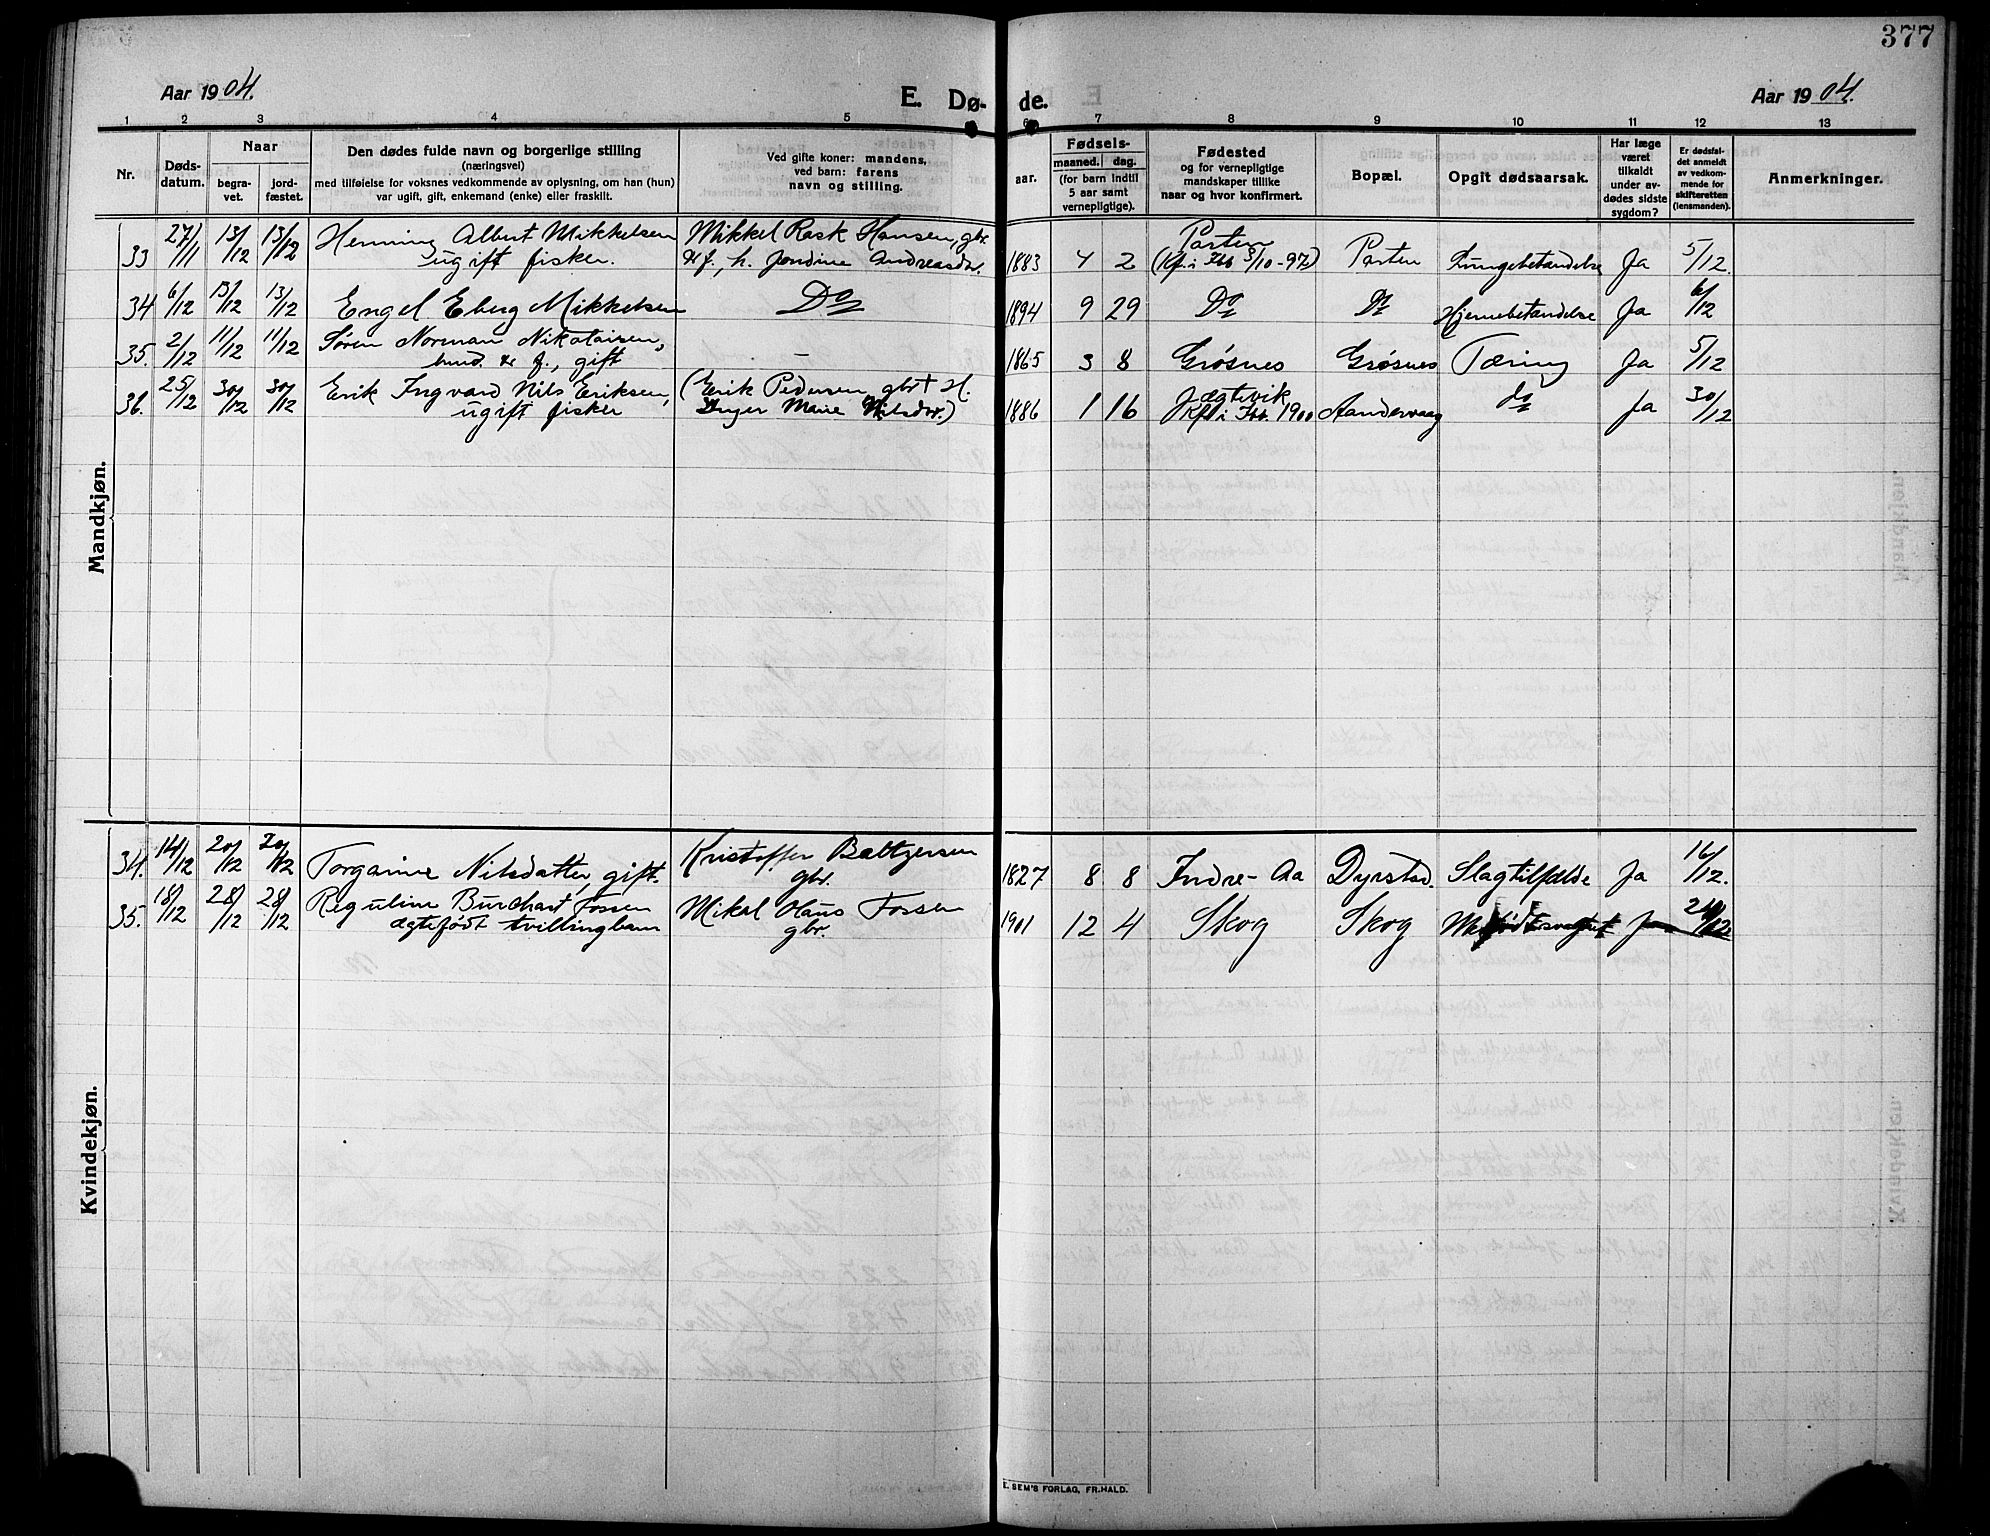 377
Aar 1904.
E. Dø- de.
Aar 1904.
1 2 3 4 5 6 7 8 9 10 11 12 13
Nr.
Døds-
datum.
Naar
begra-
vet.
jord-
fæstet.
Den dødes fulde navn og borgerlige stilling
(næringsvei)
med tilføielse for voksnes vedkommende av oplysning, om han (hun)
var ugift, gift, enkemand (enke) eller fraskilt.
Ved gifte koner: mandens,
ved barn: farens
navn og stilling.
Fødsels-
aar.
maaned. dag.
(for barn indtil
5 aar samt
vernepligtige).
Fødested
og for vernepligtige
mandskaper tillike
naar og hvor konfirmert.
Bopæl.
Opgit dødsaarsak.
Har læge
været
tilkaldt
under av-
dødes sidste
sygdom?
Er dødsfal-
det anmeldt
av vedkom-
mende for
skifteretten
(lensmanden).
Anmerkninger.
Mandkjøn.
33 27/11 13/12 13/12 Henning Albert Mikkelsen Mikkel Rask Hansen, gbr. 1883 4 2 Parten Parten Lungebetændelse Ja 5/12.
ugift fisker. & f., h. Jendine Andreasdr. (Kf. i Ibb 3/10-97)
34 6/12 13/12 13/12 Engel Eberg Mikkelsen Do 1894 9 29 Do Do Hjernebetændelse Ja 6/12
35. 2/12 11/12 11/12 Søren Norman Nikolaisen, – 1865 3 8 Grøsnes Grøsnes Tæring Ja 5/12
& f., gift
36. 25/12 30/12 30/12 Erik Ingvard Nils Eriksen, (Erik Pedersen, gbr + H. 1886 1 16 Jægtevik Aandervaag do Ja 30/12
ugift fisker Inger Marie Nilsdr.) Kf. i Ibb. 1900
Kvindekjøn.
34. 14/12 20/12 20/12 Torganine Nilsdatter, gift. Kristoffer Baltzersen 1827 8 8 Indre-Aa Dyrstad. Slagtilfælde Ja 16/12.
gbr.
35. 18/12 28/12 28/12 Reguline Burchart Fossen Mikal Olaus Fossen 1901 12 4 Skog Skog 28/12
ægtefødt tvillingbarn gbr.
E. SEM'S FORLAG, FR.HALD.